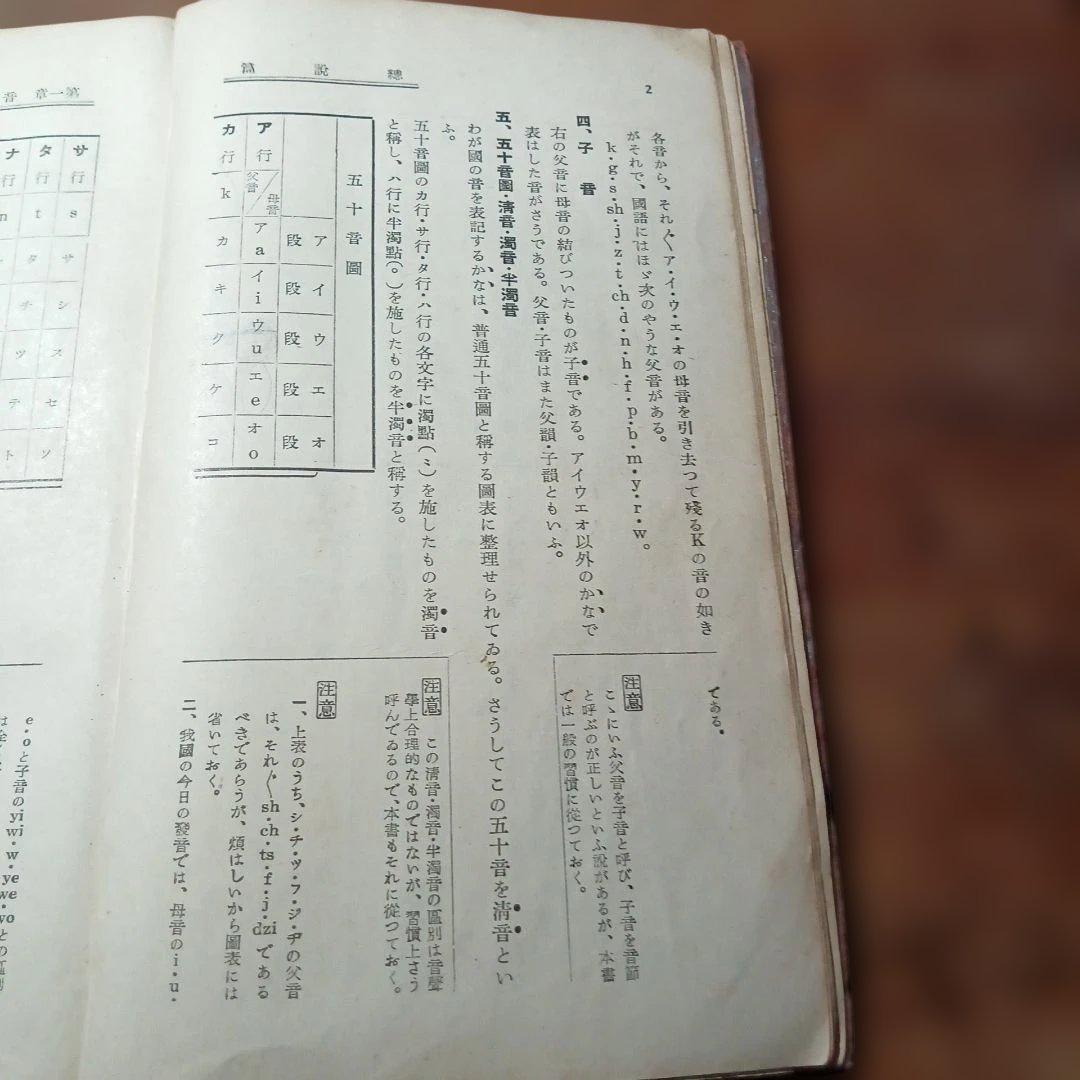 總說篇
2
各音から、それ〲ア・イ・ウ・エ・オの母音を引き去つて殘るKの音の如き
がそれで、國語にはほゞ次のやうな父音がある。
k・g・s・sh・j・z・t・ch・d・n・h・f・p・b・m・y・r・w。
四、子音
右の父音に母音の結びついたものが子音である。アイウエオ以外のかなで
表はした音がさうである。父音・子音はまた父韻・子韻ともいふ。
五、五十音圖・淸音・濁音・半濁音
わが國の音を表記するかなは、普通五十音圖と稱する圖表に整理せられてゐる。さうしてこの五十音を淸音とい
ふ。
五十音圖のカ行・サ行・タ行・ハ行の各文字に濁點(〃)を施したものを濁音
と稱し、ハ行に半濁點(。)を施したものを半濁音と稱する。
五十音圖
ア段 イ段 ウ段 エ段 オ段
ア行 父音/母音 アa イi ウu エe オo
カ行 k カ キ ク ケ コ
である。
注意
こゝにいふ父音を子音と呼び、子音を音節
と呼ぶのが正しいといふ說があるが、本書
では一般の習慣に從つておく。
注意
この淸音・濁音・半濁音の區別は音聲
學上合理的なものではないが、習慣上さう
呼んでゐるので、本書もそれに從つておく。
注意
一、上表のうち、シ・チ・ツ・フ・ジ・ヂの父音
は、それ〲sh・ch・ts・f・j・dziである
べきであらうが、煩はしいから圖表には
省いておく。
二、我國の今日の發音では、母音のi・u・
第一章 音
サ行 s サ シ ス セ ソ
タ行 t タ チ ツ テ ト
ナ行 n
e・oと子音のyi・w・ye
wi・we・woとの區別